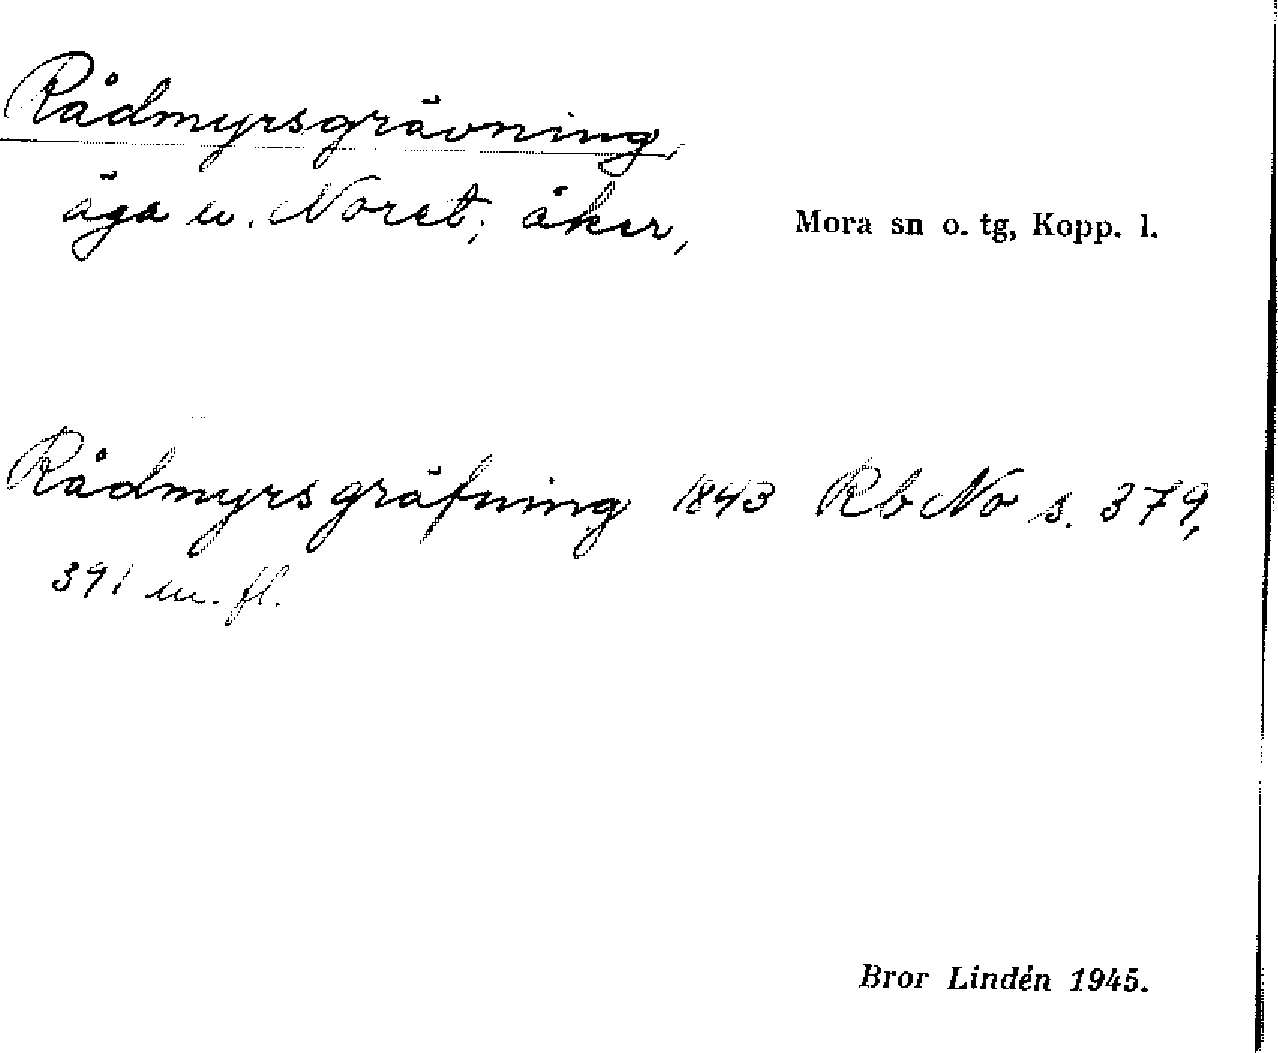 Rådmyrsgrävning,
äga u. Noret; åker,
Mora sn o. tg, Kopp. l.
Rådmyrsgräfning 1843 Rb No s. 379,
391 m. fl.
Bror Lindén 1945.